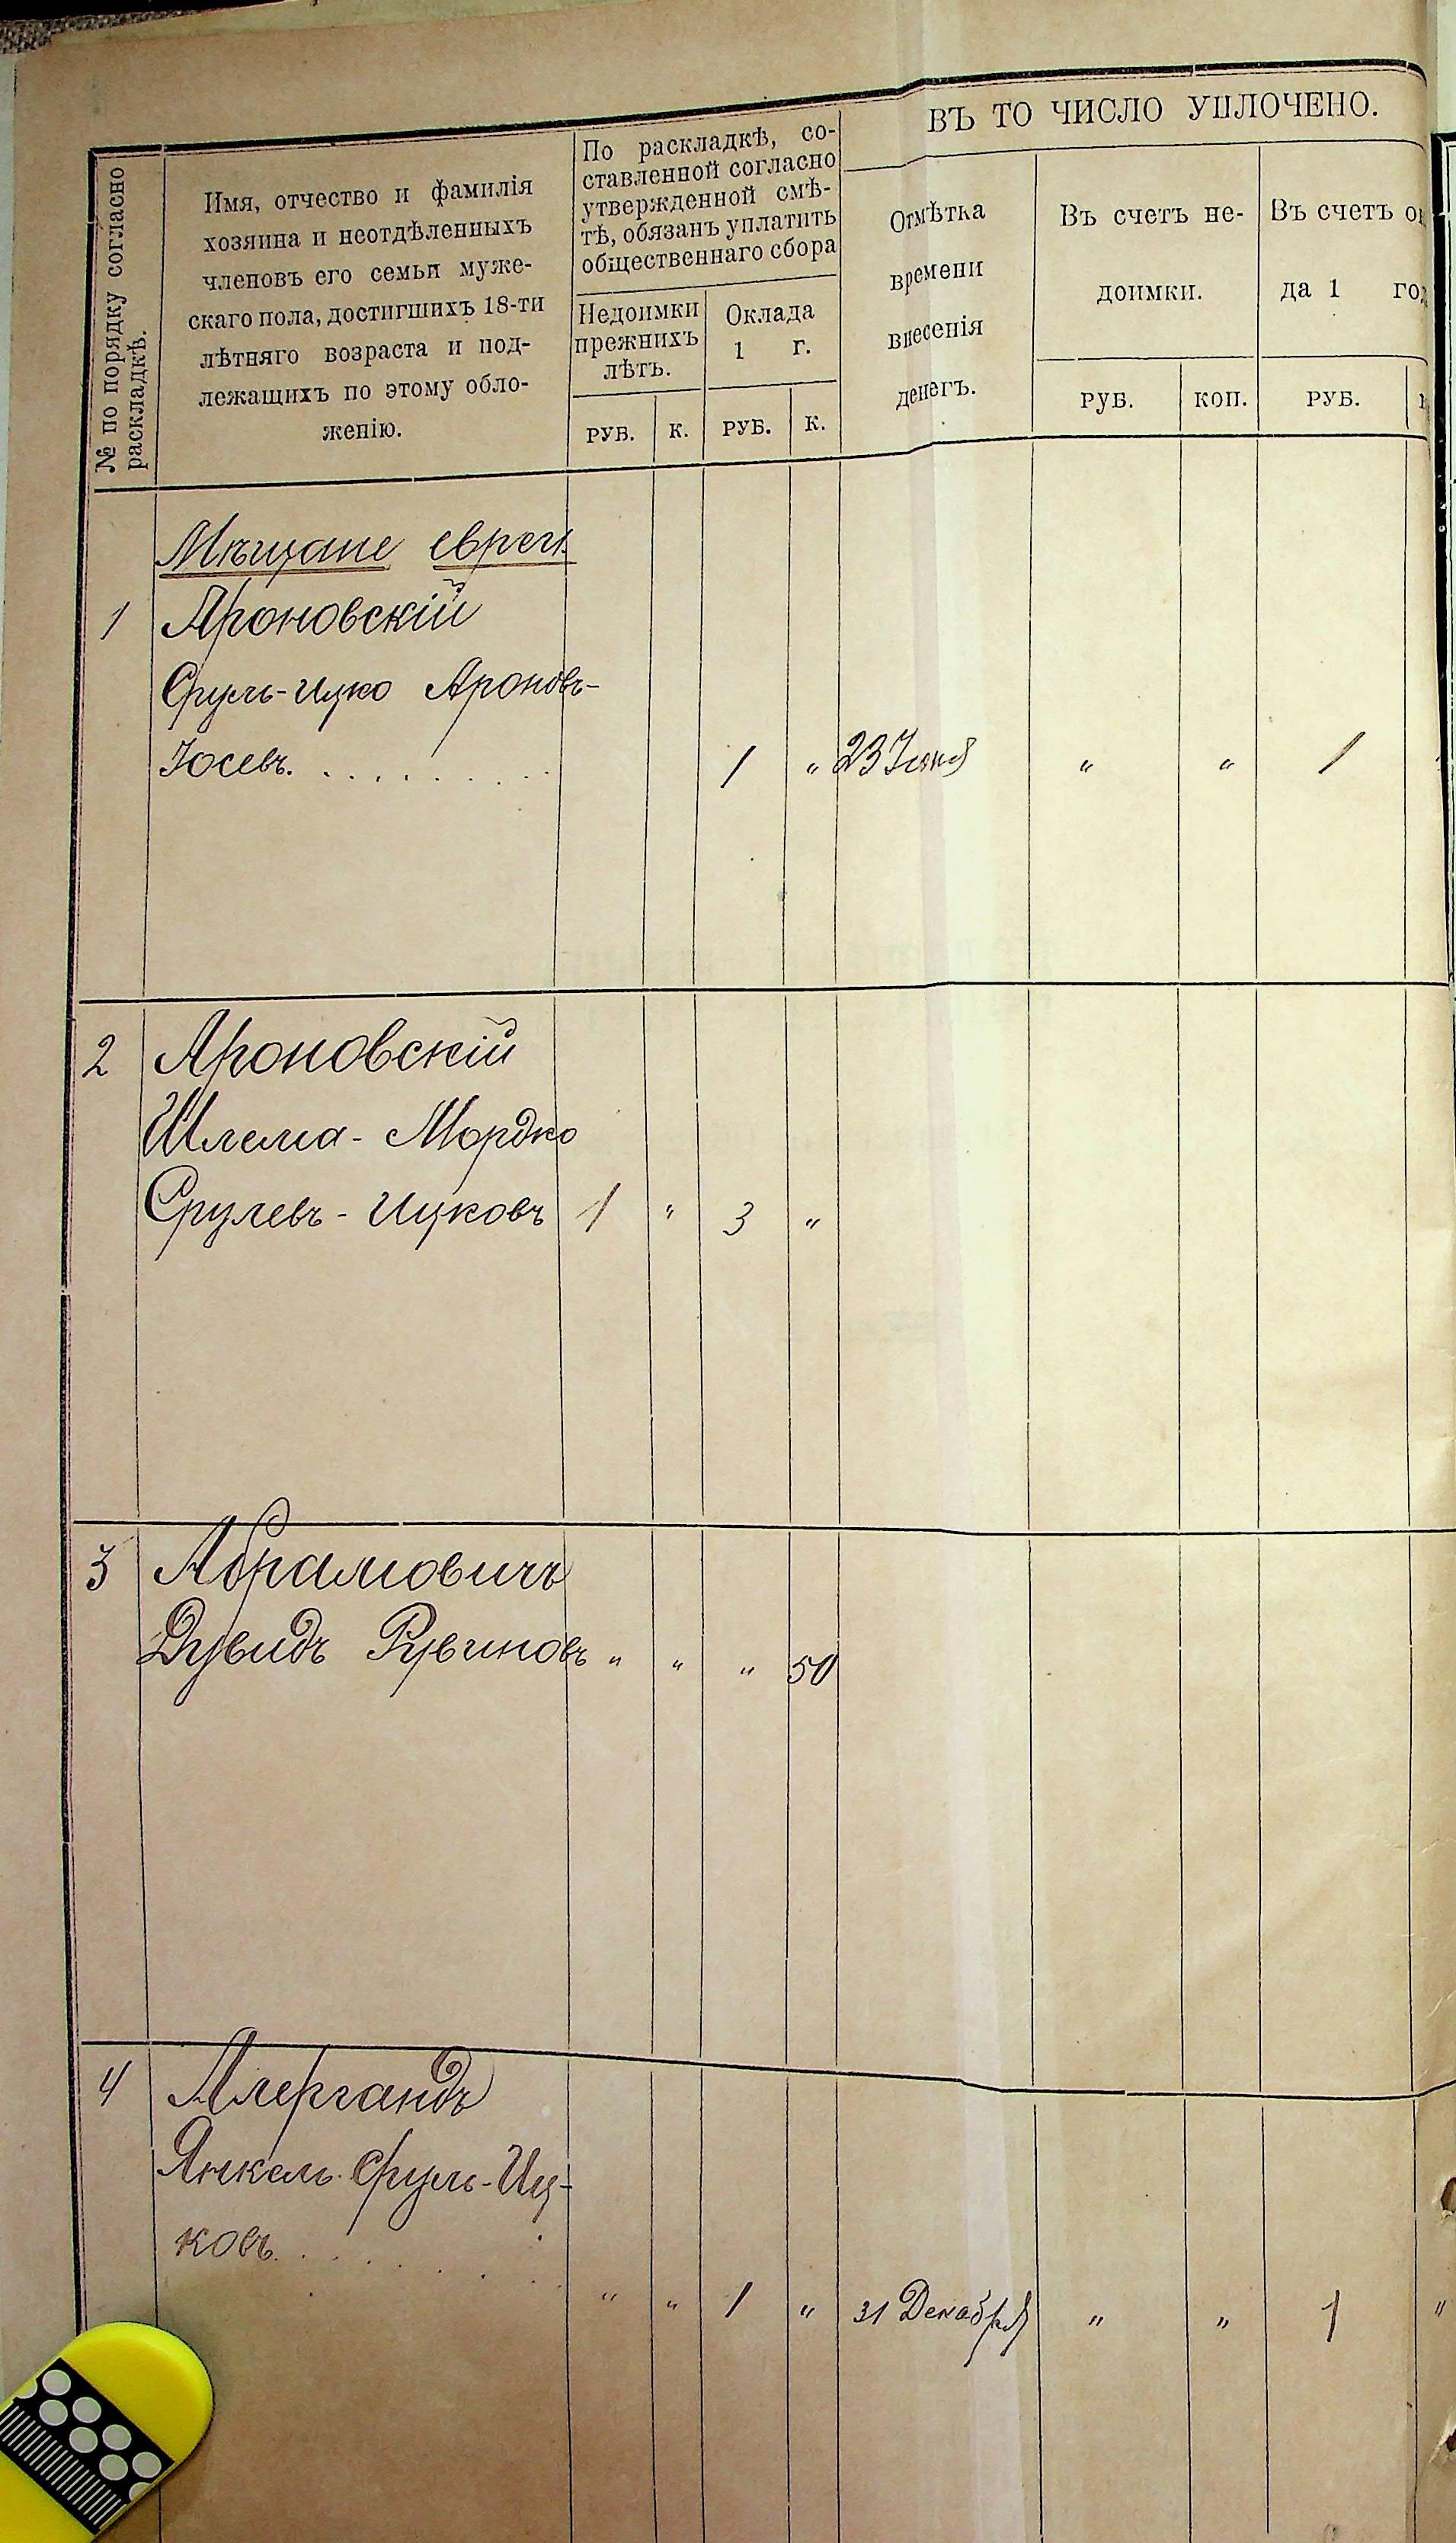 ВЪ ТО ЧИСЛО УПЛОЧЕНО.
№ по порядку согласно
раскладкѣ.
Имя, отчество и фамилія
хозяина и неотдѣленныхъ
членовъ его семьи муже-
скаго пола, достигшихъ 18-ти
лѣтняго возраста и под-
лежащихъ по этому обло-
женію.
По раскладкѣ, со-
ставленной согласно
утвержденной смѣ-
тѣ, обязанъ уплатить
общественнаго сбора
Недоимки
прежнихъ
лѣтъ.
Оклада
1 г.
РУБ. К. РУБ. К.
Отмѣтка
времени
внесенія
денегъ.
Въ счетъ не-
доимки.
РУБ. КОП.
Въ счетъ о
да 1 го
РУБ.
Мѣщане евреи
1 Ароновскій
Сруль-Ицко Ароновъ-
Іосевъ. . . . . . . . . 1 " 23 Іюня " " 1
2 Ароновскій
Шлема-Мордко
Срулевъ-Ицковъ 1 " 3 "
3 Абрамовичъ
Дувидъ Рувиновъ " " " 50
4 Алергандъ
Янкель Сруль-Иц-
ковъ . . . . . . .
" " 1 " 31 Декабря " " 1 "